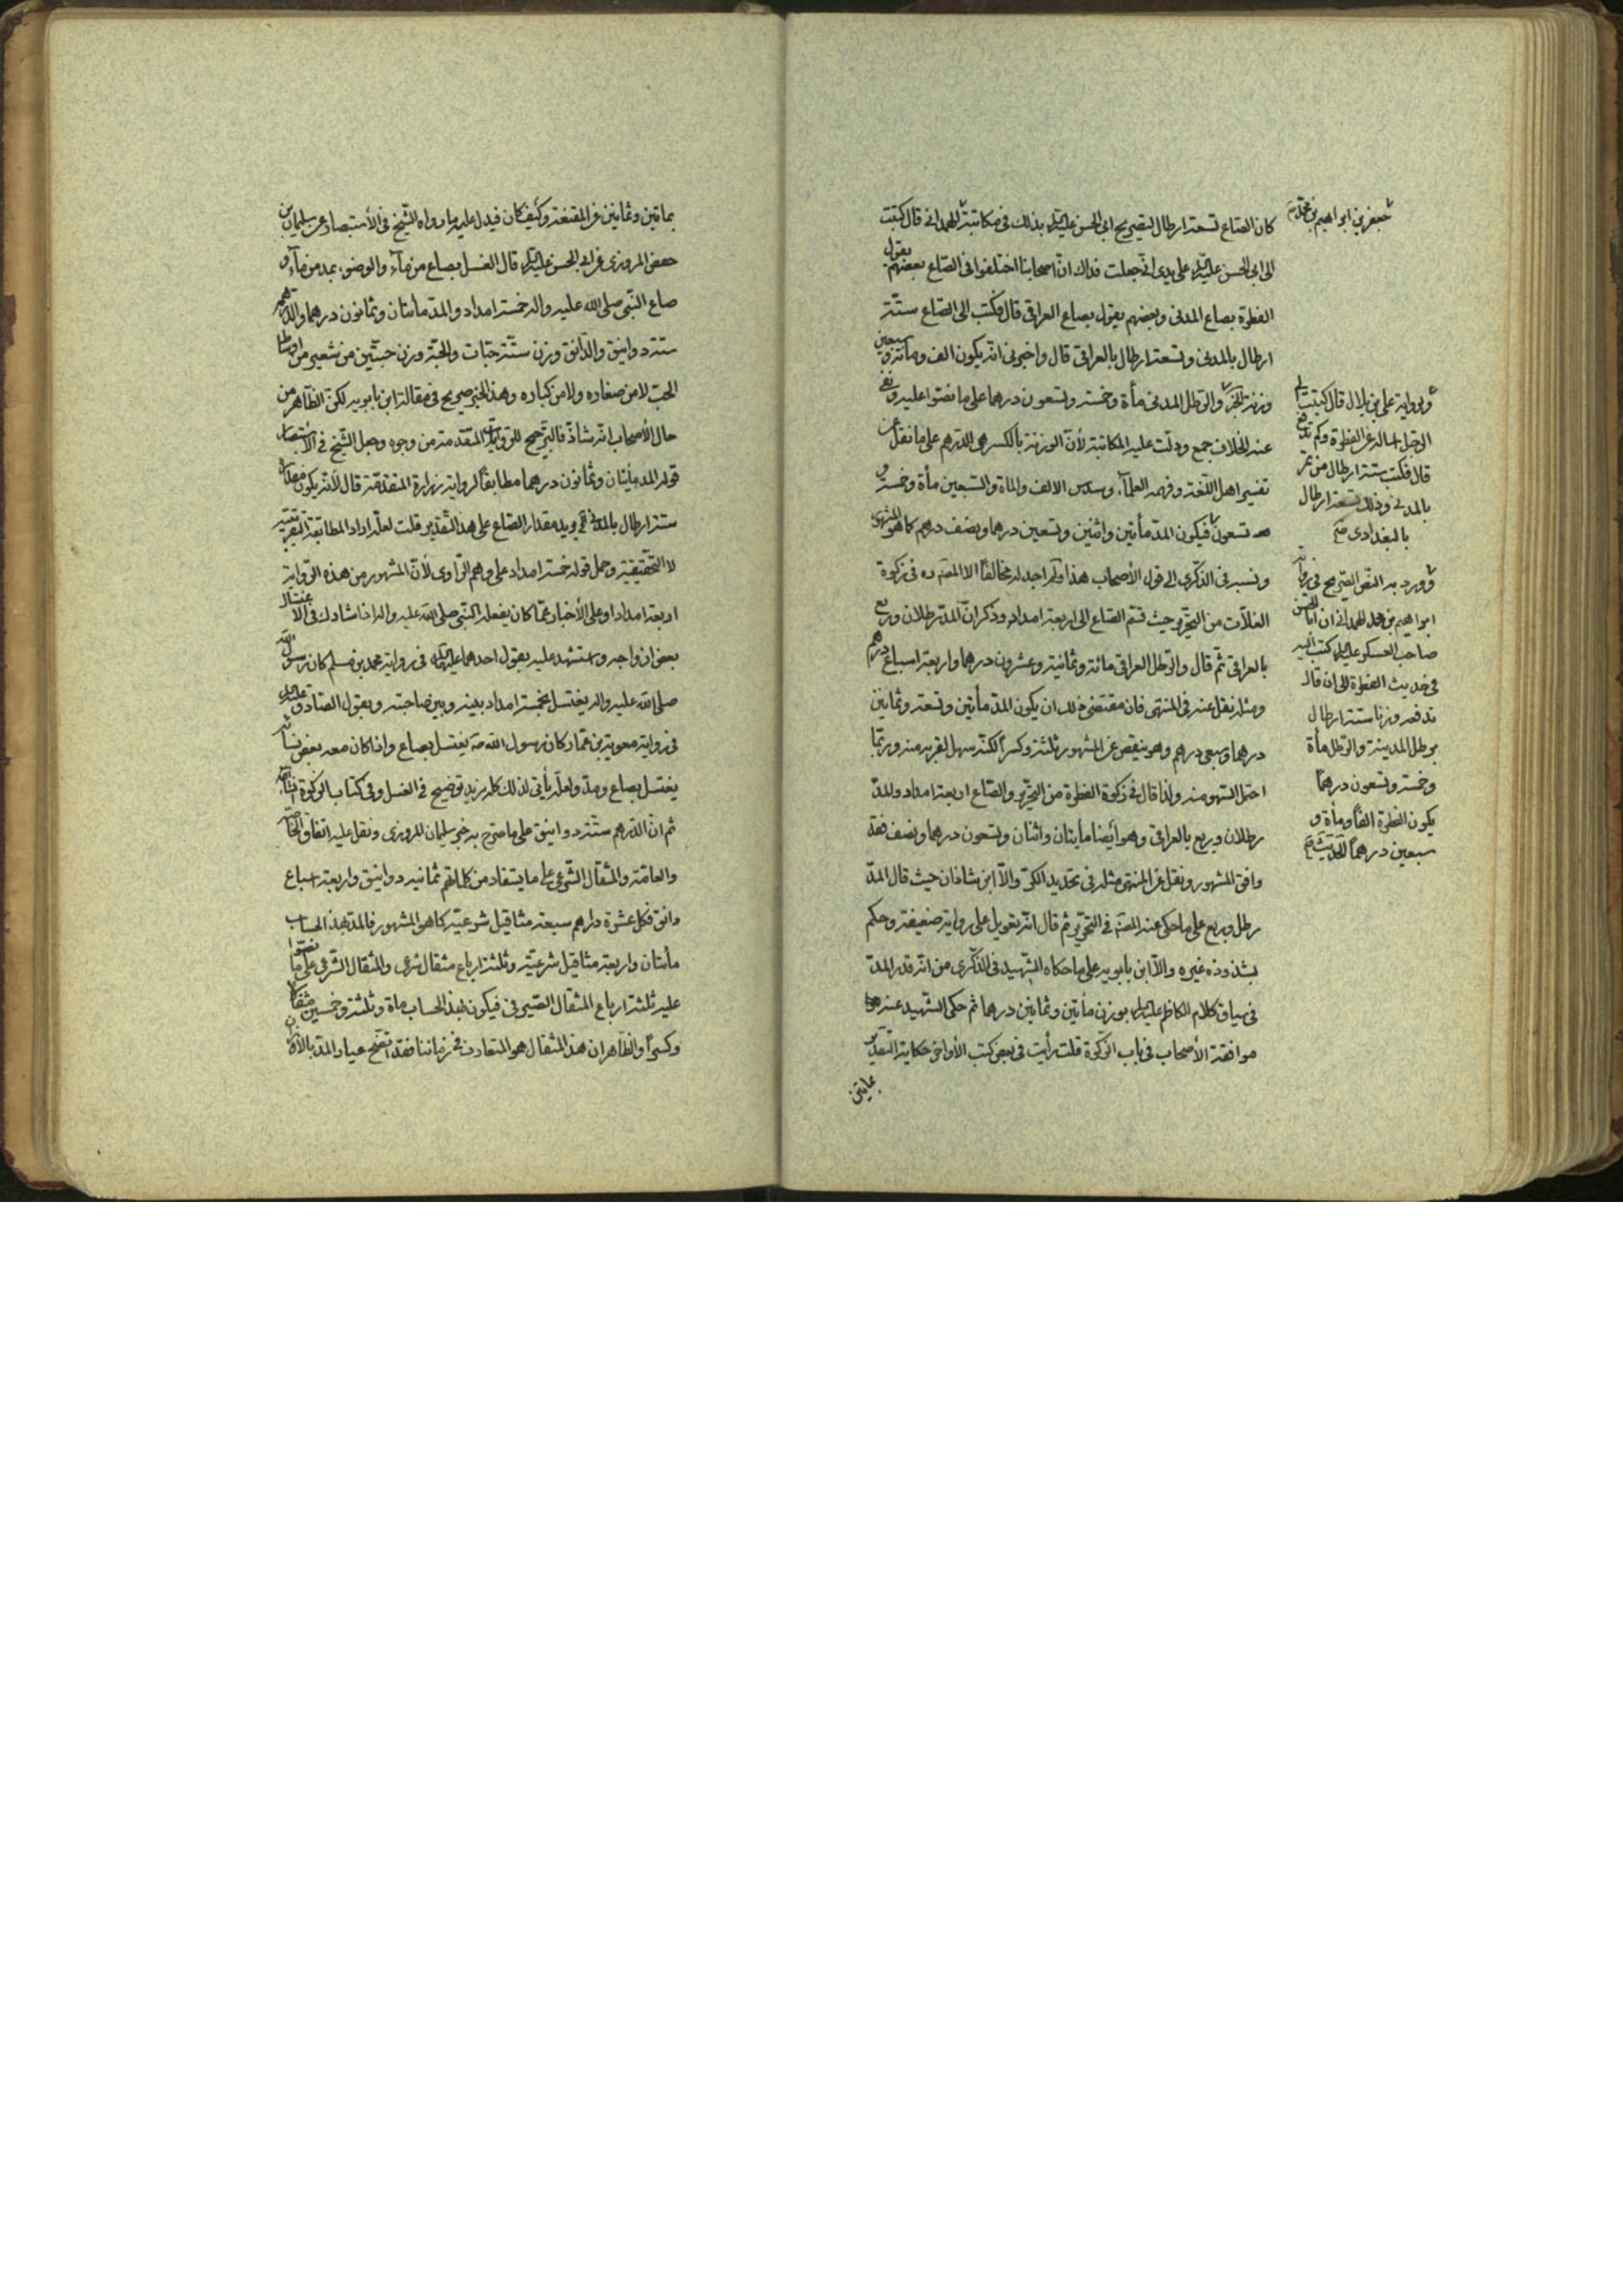 كان الصاع تسعة ارطال لتصريح ابي الحسن عليه السلم بذلك في مكاتبة الهمداني قال كتبت
الى ابي الحسن عليه السلم على يدي ابي جعلت فداك انّ اصحابنا اختلفوا في الصاع بعضهم يقول
الفطرة بصاع المدني وبعضهم يقول بصاع العراقي قال فكتب الى الصاع ستة
ارطال بالمدني وتسعة ارطال بالعراقي قال واخبرني انه يكون الف ومائة وسبعين
وزنة والرطل المدني مأة وخمسة وتسعون درهما على ما نصّوا عليه
عند الخلاف جمع ودلّت عليه المكاتبة لأنّ الوزنة بالكسر هي الدرهم على ما نقل عن
تفسير اهل اللغة وفهمه العلمآء وسدس الالف والماة والسبعين مأة وخمسة و
تسعون فيكون المدّ مأتين واثنين وتسعين درهما ونصف درهم كما هو المشهور
ونسبه في الذكرى الى قول الأصحاب هذا ولم اجد له مخالفًا الا المصنف ره في زكوة
الغلاّت من التحرير حيث قسّم الصاع الى اربعة امداد وذكر انّ المدّ رطلان وربع
بالعراقي ثمّ قال والرطل العراقي مائة وثمانية وعشرون درهما واربعة اسباع درهم
ومثله نقل عنه في المنتهى فان مقتضى ذلك ان يكون المد مأتين وتسعة وثمانين
درهما وسبعي درهم وهو ينقص عن المشهور ثلثة وكسراً لكنّه سهل لقربه منه وربّما
احتمل السهو منه ولذا قال في زكوة الفطرة من التحرير والصّاع اربعة امداد والمدّ
رطلان وربع بالعراقي وهو أيضا مأيتان واثنان وتسعون درهما ونصف فقد
وافق المشهور ونقل عن المنتهى مثله في تحديد الكرّ والاّ ابن شاذان حيث قال المدّ
رطل وربع على ما حكى عنه المصنف في التحرير ثم قال انّه تعويل على رواية ضعيفة وحكم
بشذوذه غيره والاّ ابن بابويه على ما حكاه الشهيد في الذكرى من انّه قدر المدّ
في سياق كلام الكاظم عليه السلم بوزن مأتين وثمانين درهما ثم حكى الشهيد عنه
موافقة الأصحاب في باب الزكوة قلت رأيت في بعض كتب الأواخر حكاية التقدير
بمأتين
جعفر بن ابراهيم بن محمد
وبرواية علي بن بلال قال كتبت الى
الرجل اساله عن الفطرة وكم تدفع
قال فكتب ستة ارطال من تمر
بالمدني وذلك تسعة ارطال
بالبغدادي
وورد به النص الصريح في رواية
ابراهيم بن محمد الهمداني ان ابا الحسن
صاحب العسكر عليه السلم كتب اليه
في حديث الفطرة الى ان قال
تدفعه وزنا ستة ارطال
برطل المدينة والرطل مأة
وخمسة وتسعون درهمًا
يكون الفطرة الفًا ومأة و
سبعين درهماً الحديث
بماتين وثمانين عن المقنعة وكيف كان فيدل عليه ما رواه الشّيخ في الأستبصار عن سليمان بن
حفص المروزي عن ابي الحسن عليه السلم قال الغسل بصاع من مآء والوضوء بمد من مآء و
صاع النّبي صلى الله عليه واله خمسة امداد والمد مأتان وثمانون درهما والدرهم
ستة دوانيق والدانق وزن ستّة حبّات والحبّة وزن حبتين من شعير من اوساط
الحب لا من صغاره ولا من كباره وهذا الخبر صريح في مقالة ابن بابويه لكن الظّاهر من
حال الأصحاب انّه شاذّ فالترجيح للروايات المتقدمة من وجوه وجعل الشّيخ في الأستبصار
قوله المد مأيتان وثمانون درهما مطابقاً لرواية زرارة المتقدمة قال لأنّه يكون مقدار
ستة ارطال بالمدني ويريد مقدار الصاع على هذا التّقدير قلت لعلّه اراد المطابقة التقريبية
لا التّحقيقية وحمل قوله خمسة امداد على وهم الرّاوي لأنّ المشهور من هذه الرواية
اربعة امداد او على الأخبار عمّا كان يفعله النبي صلى الله عليه واله اذا شارك في الاغتسال
بعض ازواجه واستشهد عليه بقول احدهما عليهما السلم في رواية محمد بن مسلم كان رسول الله
صلى الله عليه واله يغتسل بخمسة امداد بينه وبين صاحبته وبقول الصّادق عليه السلم
في رواية معوية بن عمّار كان رسول الله ص يغتسل بصاع واذا كان معه بعض نسائه
يغتسل بصاع ومدّ ولعلّه يأتي لذلك كله مزيد توضيح في الغسل وفي كتاب الزكوة انشاء الله
ثم انّ الدرهم ستّة دوانيق على ما صرّح به خبر سليمان المروزي ونقل عليه اتفاق الخاصّة
والعامّة والمثقال الشّرعي على ما يستفاد من كلامهم ثمانية دوانيق واربعة اسباع
دانق فكل عشرة دراهم سبعة مثاقيل شرعيّة كما هو المشهور فالمد بهذا الحساب
مأتان واربعة مثاقيل شرعيّة وثلثة ارباع مثقال شرعي والمثقال الشّرعي على ما نصّوا
عليه ثلثة ارباع المثقال الصّيرفي فيكون بهذا الحساب ماة وثلثة وخمسين مثقالا
وكسرًا والظّاهر ان هذا المثقال هو المتعارف في زماننا فقد اتّضح عيار المد بالأوزان